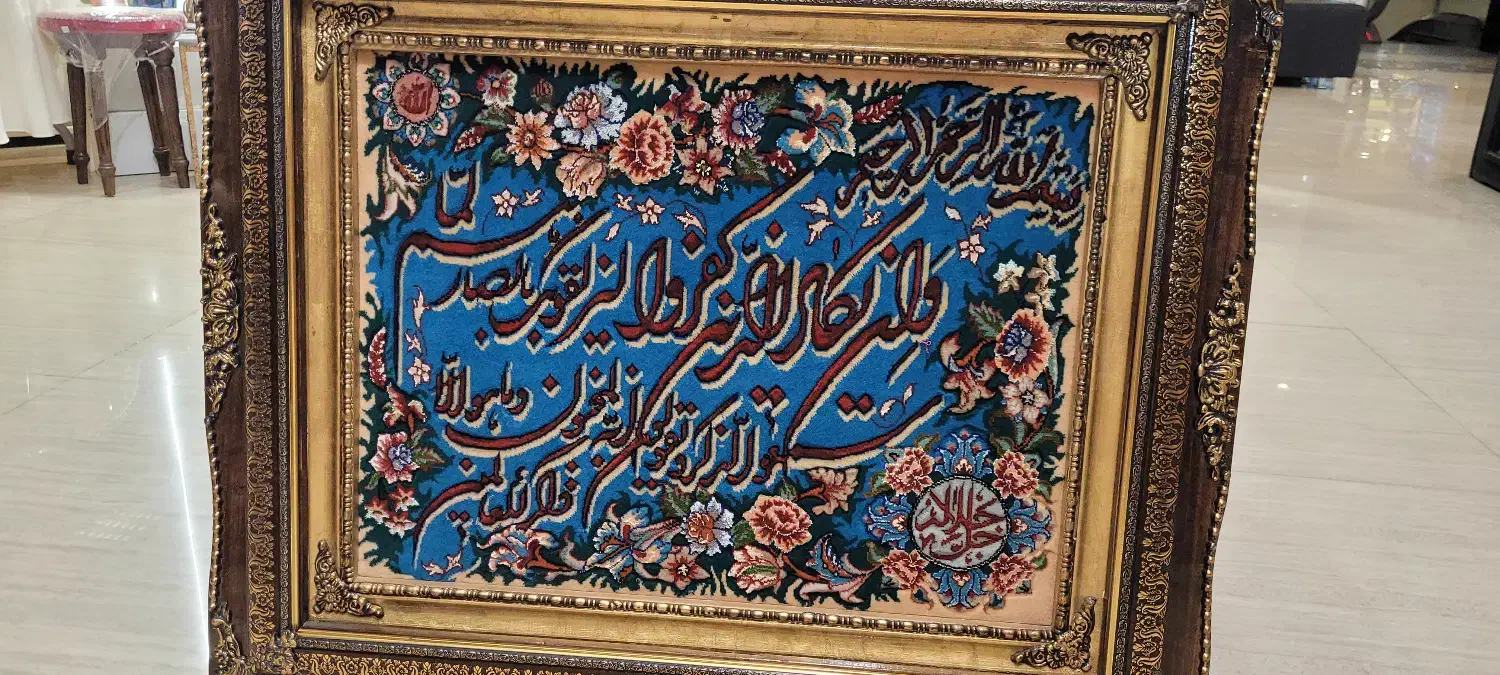 بسم الله الرحمن الرحیم
وان یکاد الذین کفروا لیزلقونک بابصار
هم لما
سمعوا الذکر و یقولون انه لمجنون وما هو الا
ذکر للعالمین
الله
جل جلاله